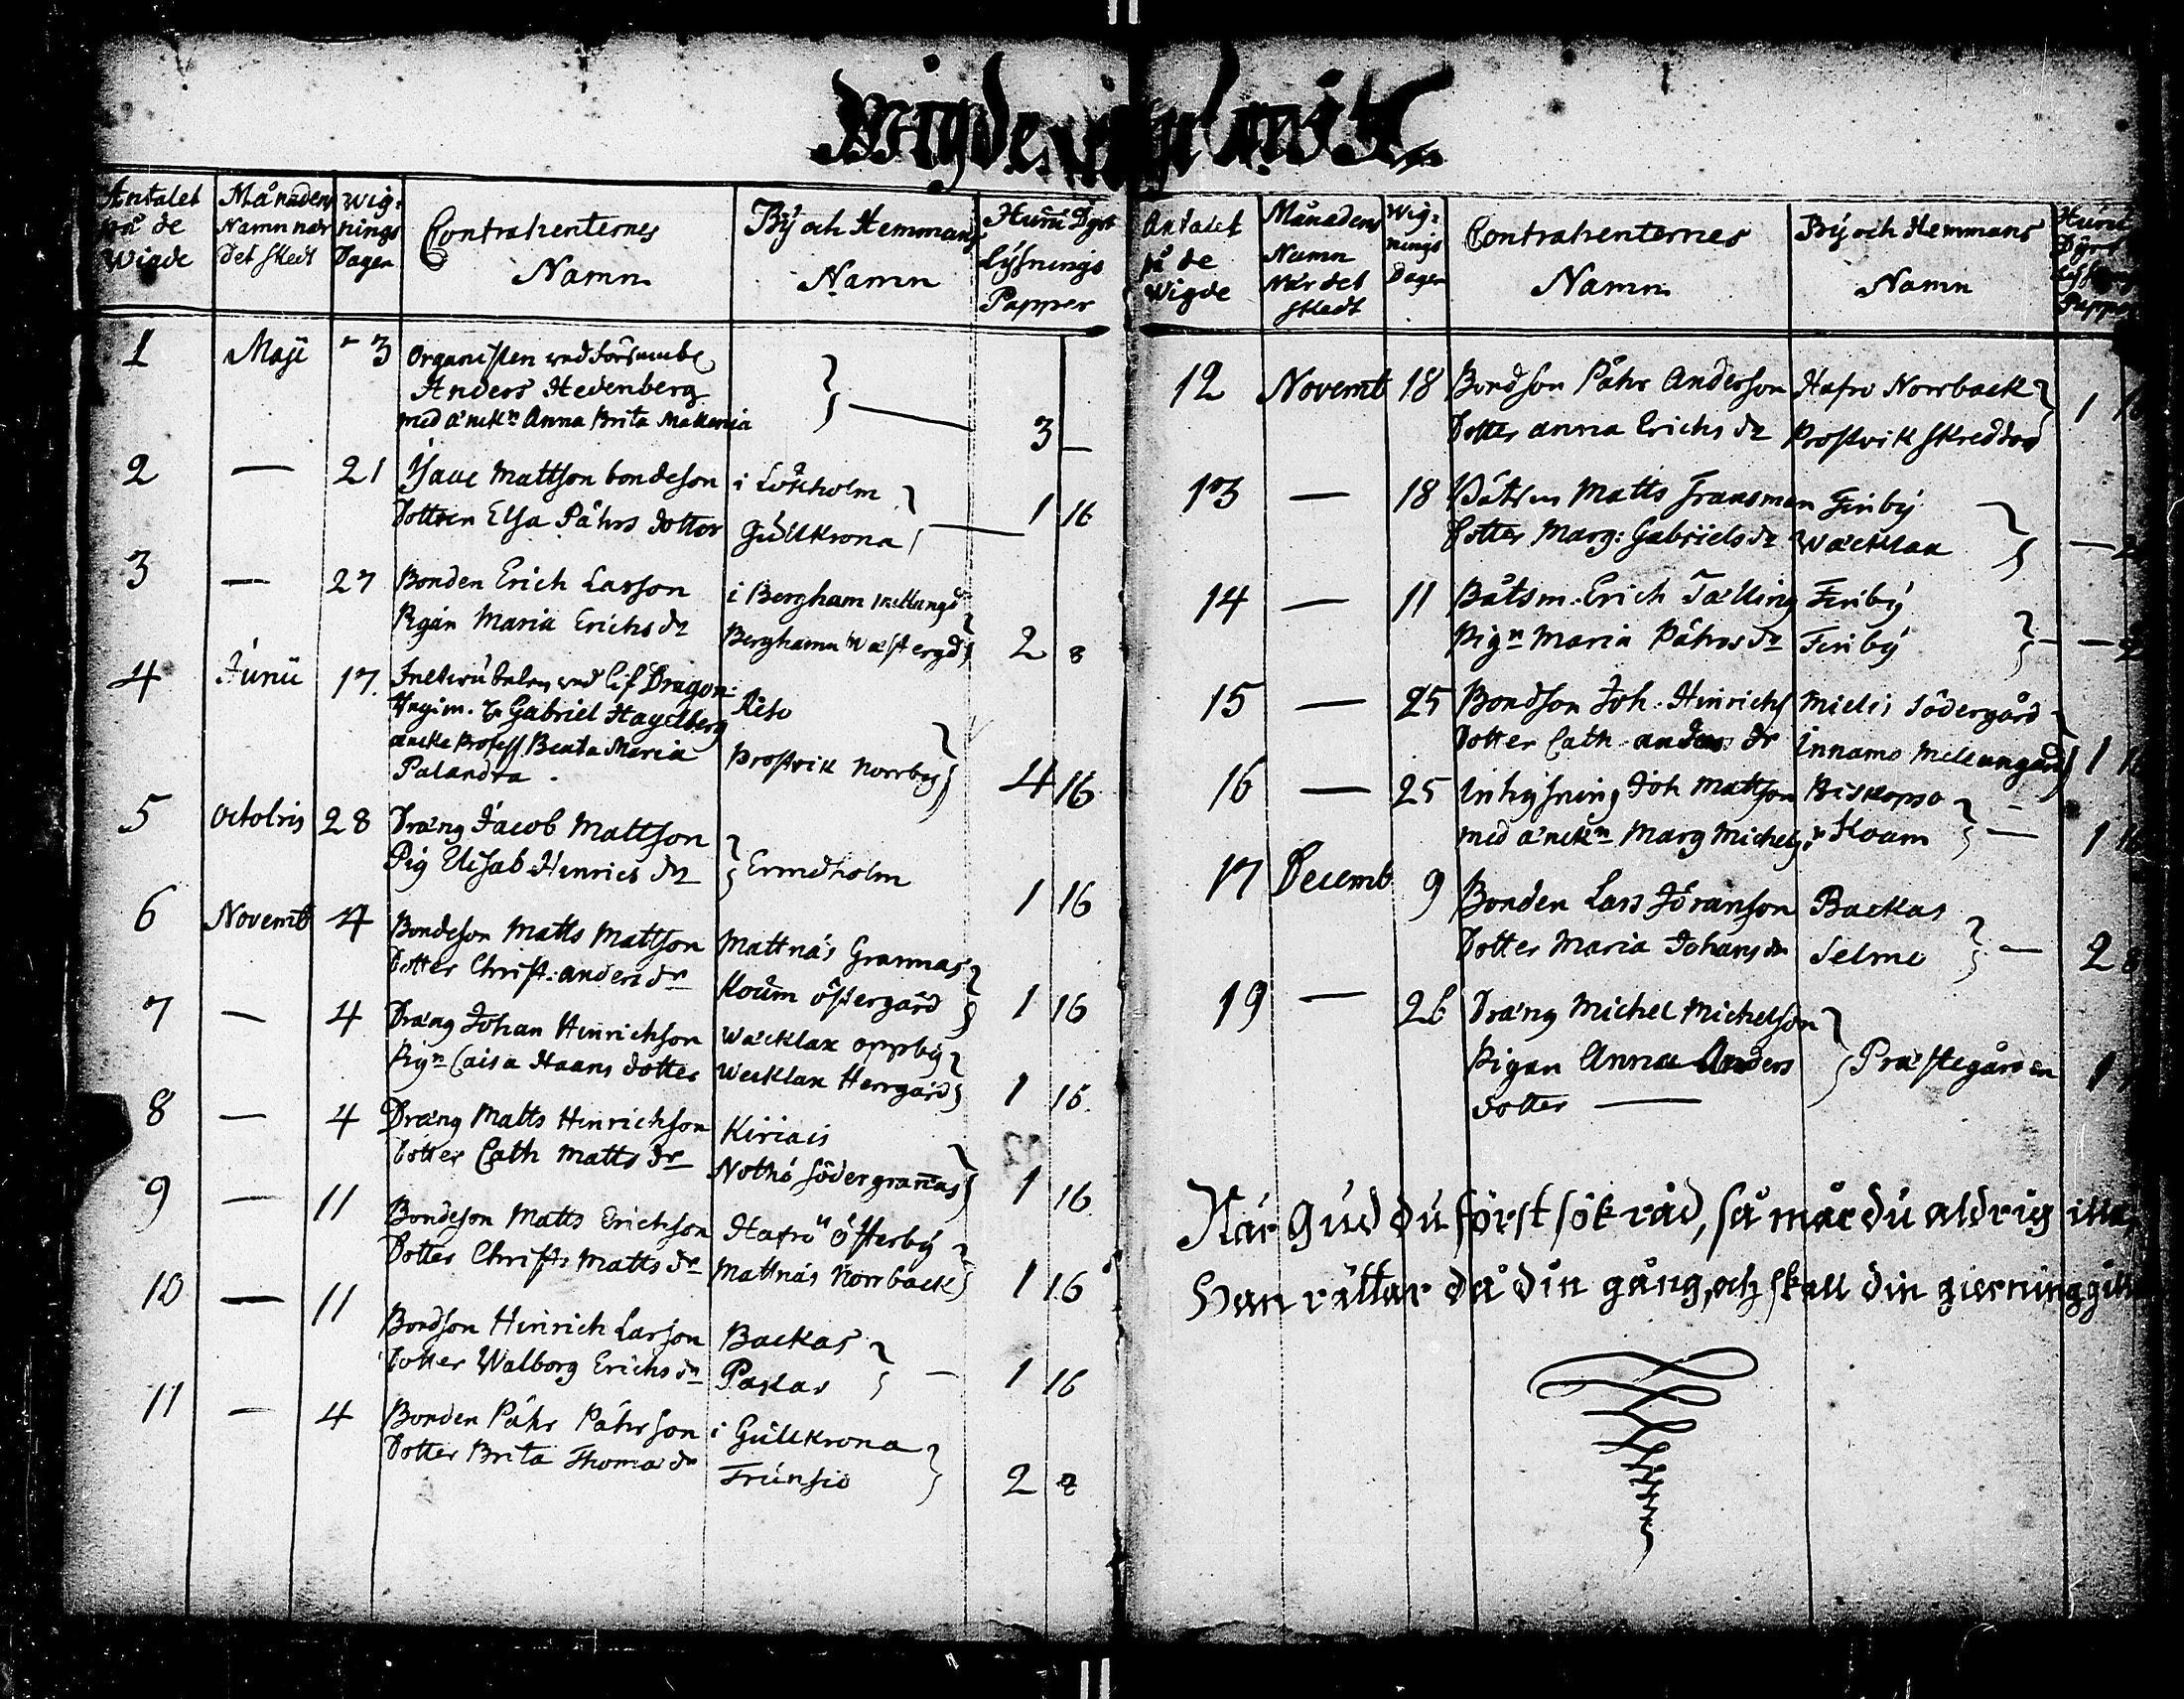 Antalet Månadens Wig-
på de Namn når nings
Wigde Det skedt Dagen
Contrahenternes
Namn
Bÿ och Hemmans
Namn
Huru Dyrt
Lÿsnings
Papper
1 Maji 3 Organisten wed
Anders Hedenberg
med änck:n Anna Brita 3 —
2 — 21 Isaac Mattson bondeson i Lökholm
Dottren Elsa Påhrs dotter Gullkrona 1 16
3 — 27 Bonden Erich Larson i Bergham Mellangd
Pigan Maria Erichs dr Berghamn Wæstergd 2 8
4 Junii 17. wed Lif Dragon:
Gabriel Hagelberg
Beata Maria Prostvik Norrby
Palandra. 4 16
5 Octobris 28 Dräng Jacob Mattson
Pig Elisab Henrics dr Ernholm 1 16
6 Novemb 4 Bondeson Matts Mattson Mattnäs Grannas
Dotter Christ: anders dr Koum östergård 1 16
7 — 4 Dräng Johan Hinrichson Wäcklax oppbÿ
Pig:n Caisa Haans dotter Wecklax Herrgård 1 16.
8 — 4 Dräng Matts Hinrichson Kiriais
Dotter Cath Matts dr Nothö Södergranas 1 16
9 — 11 Bondeson Matts Erichson Hafrö Österbÿ
Dotter Christ: Matts dr Mattnäs Norrback 1 16
10 — 11 Bondson Hinrich Larson Backas
Dotter Walborg Erichs dr Paxlas — 1 16
11 — 4 Bonden Påhr Påhrson i Gullkrona
Dotter Brita Thomas dr Trunsiö 2 8
Antalet
på de
Wigde
Månadens
Namn
När det
skedt
Wig-
nings
Dagen
Contrahenternes
Namn
Bÿ och Hemmans
Namn
Huru
Dÿrt
12 Novemb 18 Bondson Påhr Anderson Hafrö Norrback
Dotter anna Erichs dr Prostvik Skreddas 1
13 — 18 Båtsm Matts Fransman Finbÿ
Dotter Marg: Gabriels dr Wäcklax —
14 — 11 Båtsm. Erich Tælling Finbÿ
Pig:n Maria Påhrs dr Finbÿ —
15 — 25 Bondson Joh. Hinrichs Mielis Södergård
Dotter Cath anders dr Innamo Mellangård 1
16 — 25 Inhysning Joh Mattson Biskopsö —
med änck:n Marg Michels Koam — 1
17 Decemb 9 Bonden Lars Jöranson Backas
Dotter Maria Johans dr Selmo — 2
19 — 26 Dräng Michel Michelson
Pigan Anna Anders Præstegården 1
dotter —
När Gud du först sök råd, så mår du aldrig illa,
Han rättar då din gång, och skall din gierning